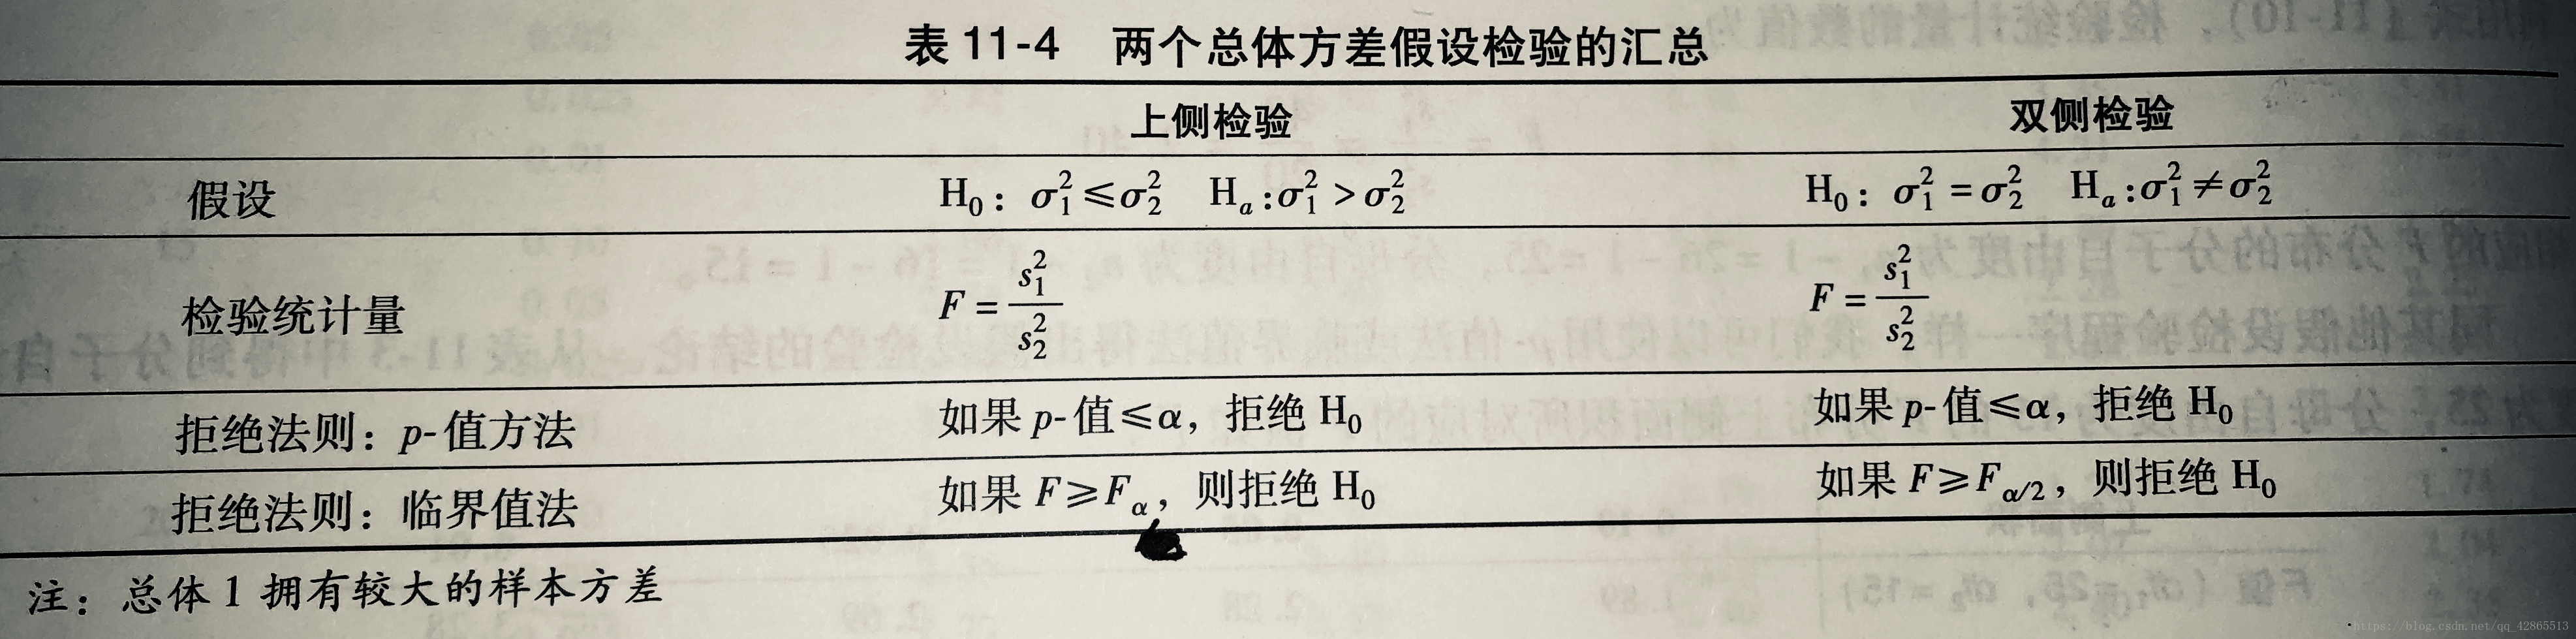 表 11-4 两个总体方差假设检验的汇总
上侧检验 双侧检验
假设 H₀：σ₁²≤σ₂² Hₐ:σ₁²>σ₂² H₀：σ₁²=σ₂² Hₐ:σ₁²≠σ₂²
检验统计量 F=s₁²/s₂² F=s₁²/s₂²
拒绝法则：p-值方法 如果 p-值≤α，拒绝 H₀ 如果 p-值≤α，拒绝 H₀
拒绝法则：临界值法 如果 F≥Fα，则拒绝 H₀ 如果 F≥Fα/2，则拒绝 H₀
注：总体 1 拥有较大的样本方差
https://blog.csdn.net/qq_42865513